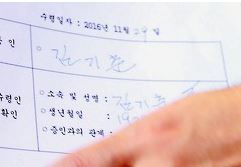 수령일자 : 2016년 11월 29일
인
김기춘
수령인
확인
○ 소속 및 성명 : 김기춘
○ 생년월일 : 19
○ 증인과의 관계 :